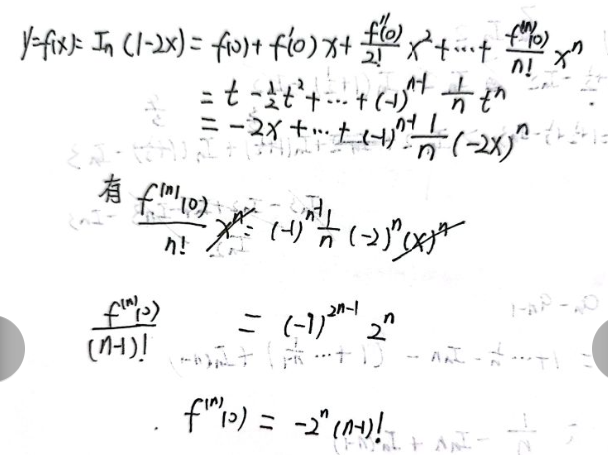 y=f(x)= In (1-2x) = f(0) + f'(0) x + f''(0)/2! x² + ... + f⁽ⁿ⁾(0)/n! xⁿ
= t - 1/2 t² + ... + (-1)ⁿ⁻¹ 1/n tⁿ
= -2x + ... + (-1)ⁿ⁻¹ 1/n (-2x)ⁿ
有 f⁽ⁿ⁾(0)/n! xⁿ = (-1)ⁿ⁻¹ 1/n (-2)ⁿ (x)ⁿ
f⁽ⁿ⁾(0)/(n-1)! = (-1)²ⁿ⁻¹ 2ⁿ
f⁽ⁿ⁾(0) = -2ⁿ (n-1)!